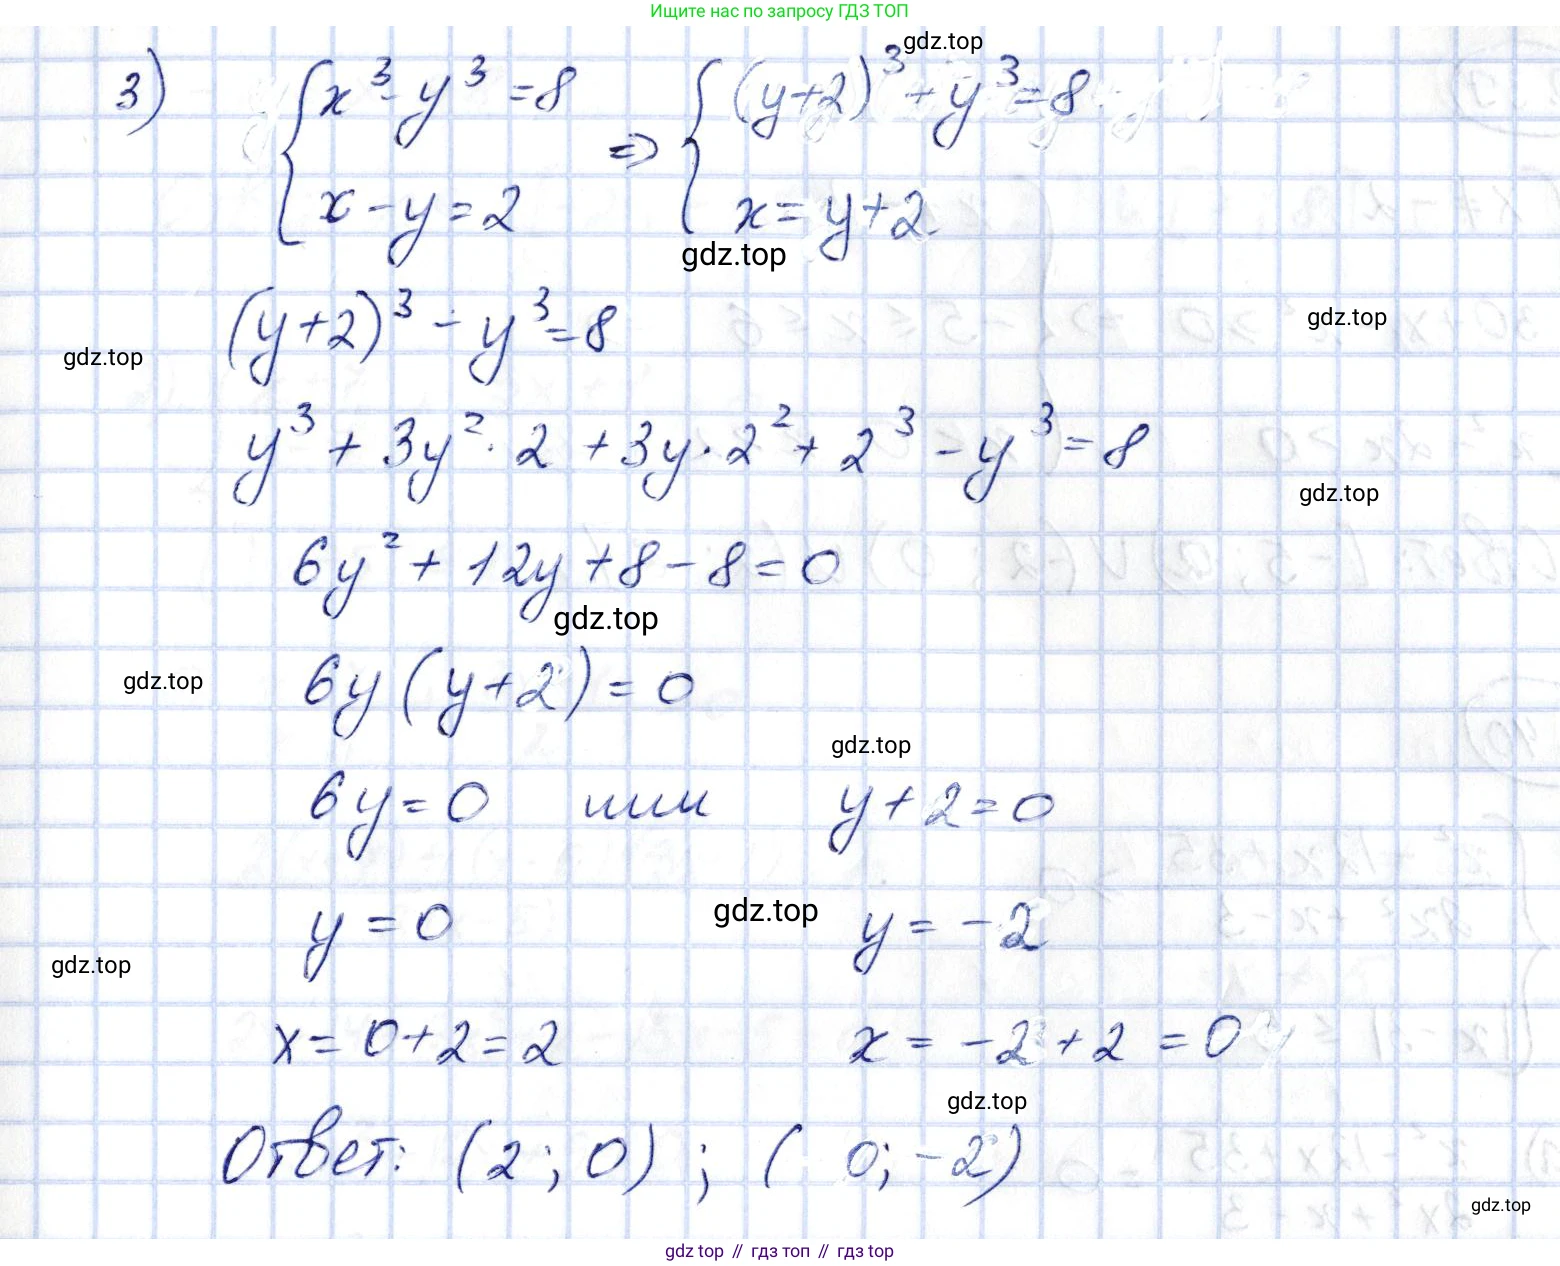 Ищите нас по запросу ГДЗ ТОП
gdz.top
3) { x³ - y³ = 8 => { (y+2)³ + y³ = 8
x - y = 2 x = y+2
gdz.top
(y+2)³ - y³ = 8
gdz.top
gdz.top
y³ + 3y² · 2 + 3y · 2² + 2³ - y³ = 8
gdz.top
6y² + 12y + 8 - 8 = 0
gdz.top
6y (y+2) = 0
gdz.top
gdz.top
6y = 0 или y + 2 = 0
gdz.top
y = 0 y = -2
gdz.top
x = 0+2 = 2 x = -2 + 2 = 0
gdz.top
Ответ: (2; 0) ; (0; -2)
gdz.top
gdz top // гдз топ // гдз top